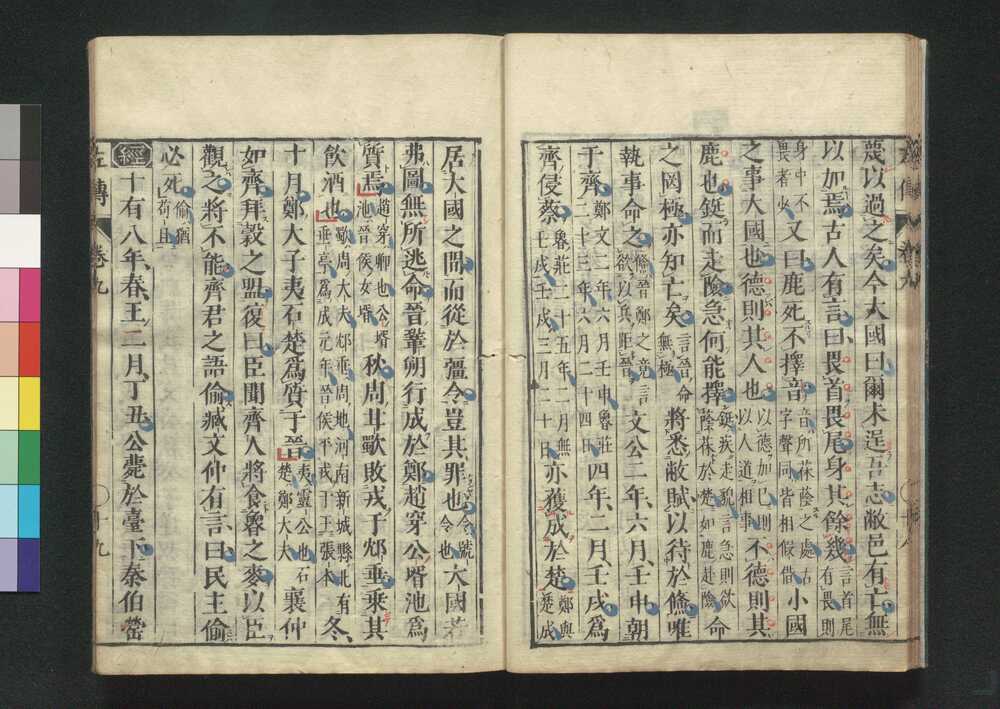 蔑以過之矣今大國曰爾未逞吾志敝邑有亡無
以加焉古人有言曰畏首畏尾身其餘幾言首尾有畏則
身中不畏者少又曰鹿死不擇音音所茠蔭之處古字聲同皆相假借小國
之事大國也德則其人也以德加己則以人道相事不德則其
鹿也鋌而走險急何能擇鋌疾走貌言急則欲蔭茠於楚如鹿赴險命
之罔極亦知亡矣言晉命無極將悉敝賦以待於鯈唯
執事命之鯈晉鄭之竟言欲以兵距晉文公二年六月壬申朝
于齊鄭文二年六月壬申魯莊二十三年六月二十四日四年二月壬戌爲
齊侵蔡魯莊二十五年二月無壬戌壬戌三月二十日亦獲成於楚鄭與楚成
居大國之閒而從於彊令豈其罪也令號令也大國若
弗圖無所逃命晉鞏朔行成於鄭趙穿公壻池爲
質焉趙穿卿也公壻池晉侯女壻秋周甘歜敗戎于邥垂乘其
飮酒也歜周大夫邥垂周地河南新城縣北有垂亭爲成元年晉侯平戎于王張本冬
十月鄭大子夷石楚爲質于晉夷靈公也石楚鄭大夫襄仲
如齊拜穀之盟復曰臣聞齊人將食魯之麥以臣
觀之將不能齊君之語偷臧文仲有言曰民主偷
必死偷猶苟且
經十有八年春王二月丁丑公薨於臺下秦伯罃
左傳 卷九 十九